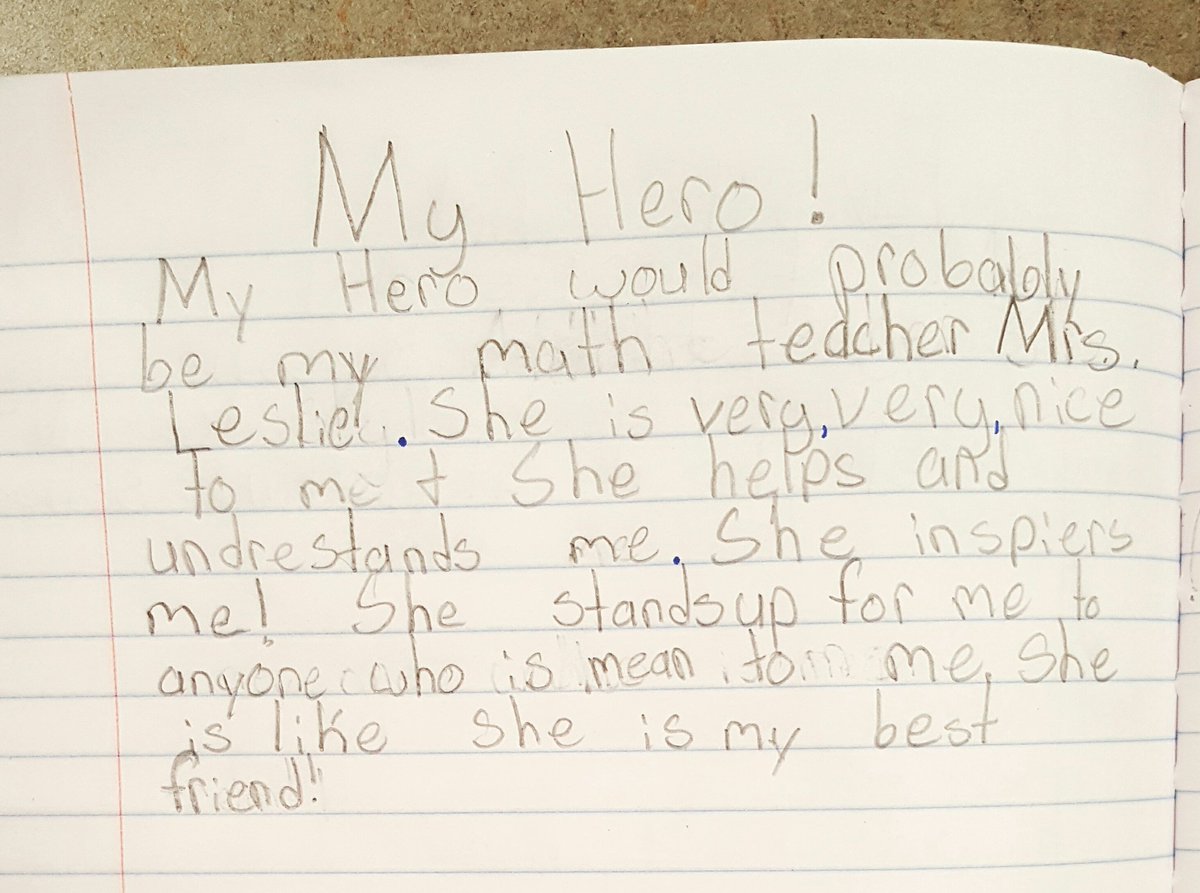 My Hero!
My Hero would probably
be my math teacher Mrs.
Leslie. She is very, very, nice
to me + She helps and
undrestands me. She inspiers
me! She stands up for me to
anyone who is mean to me. She
is like she is my best
friend!